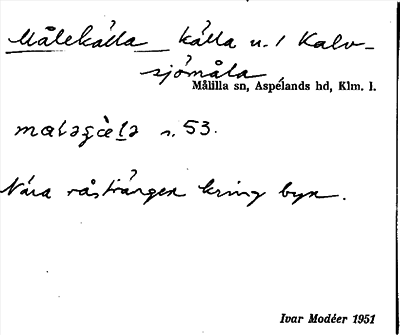 Målekälla källa u. / Kalv-
sjömåla
Målilla sn, Aspelands hd, Klm. l.
s. 53.
Nära råsträngen kring byn.
Ivar Modéer 1951